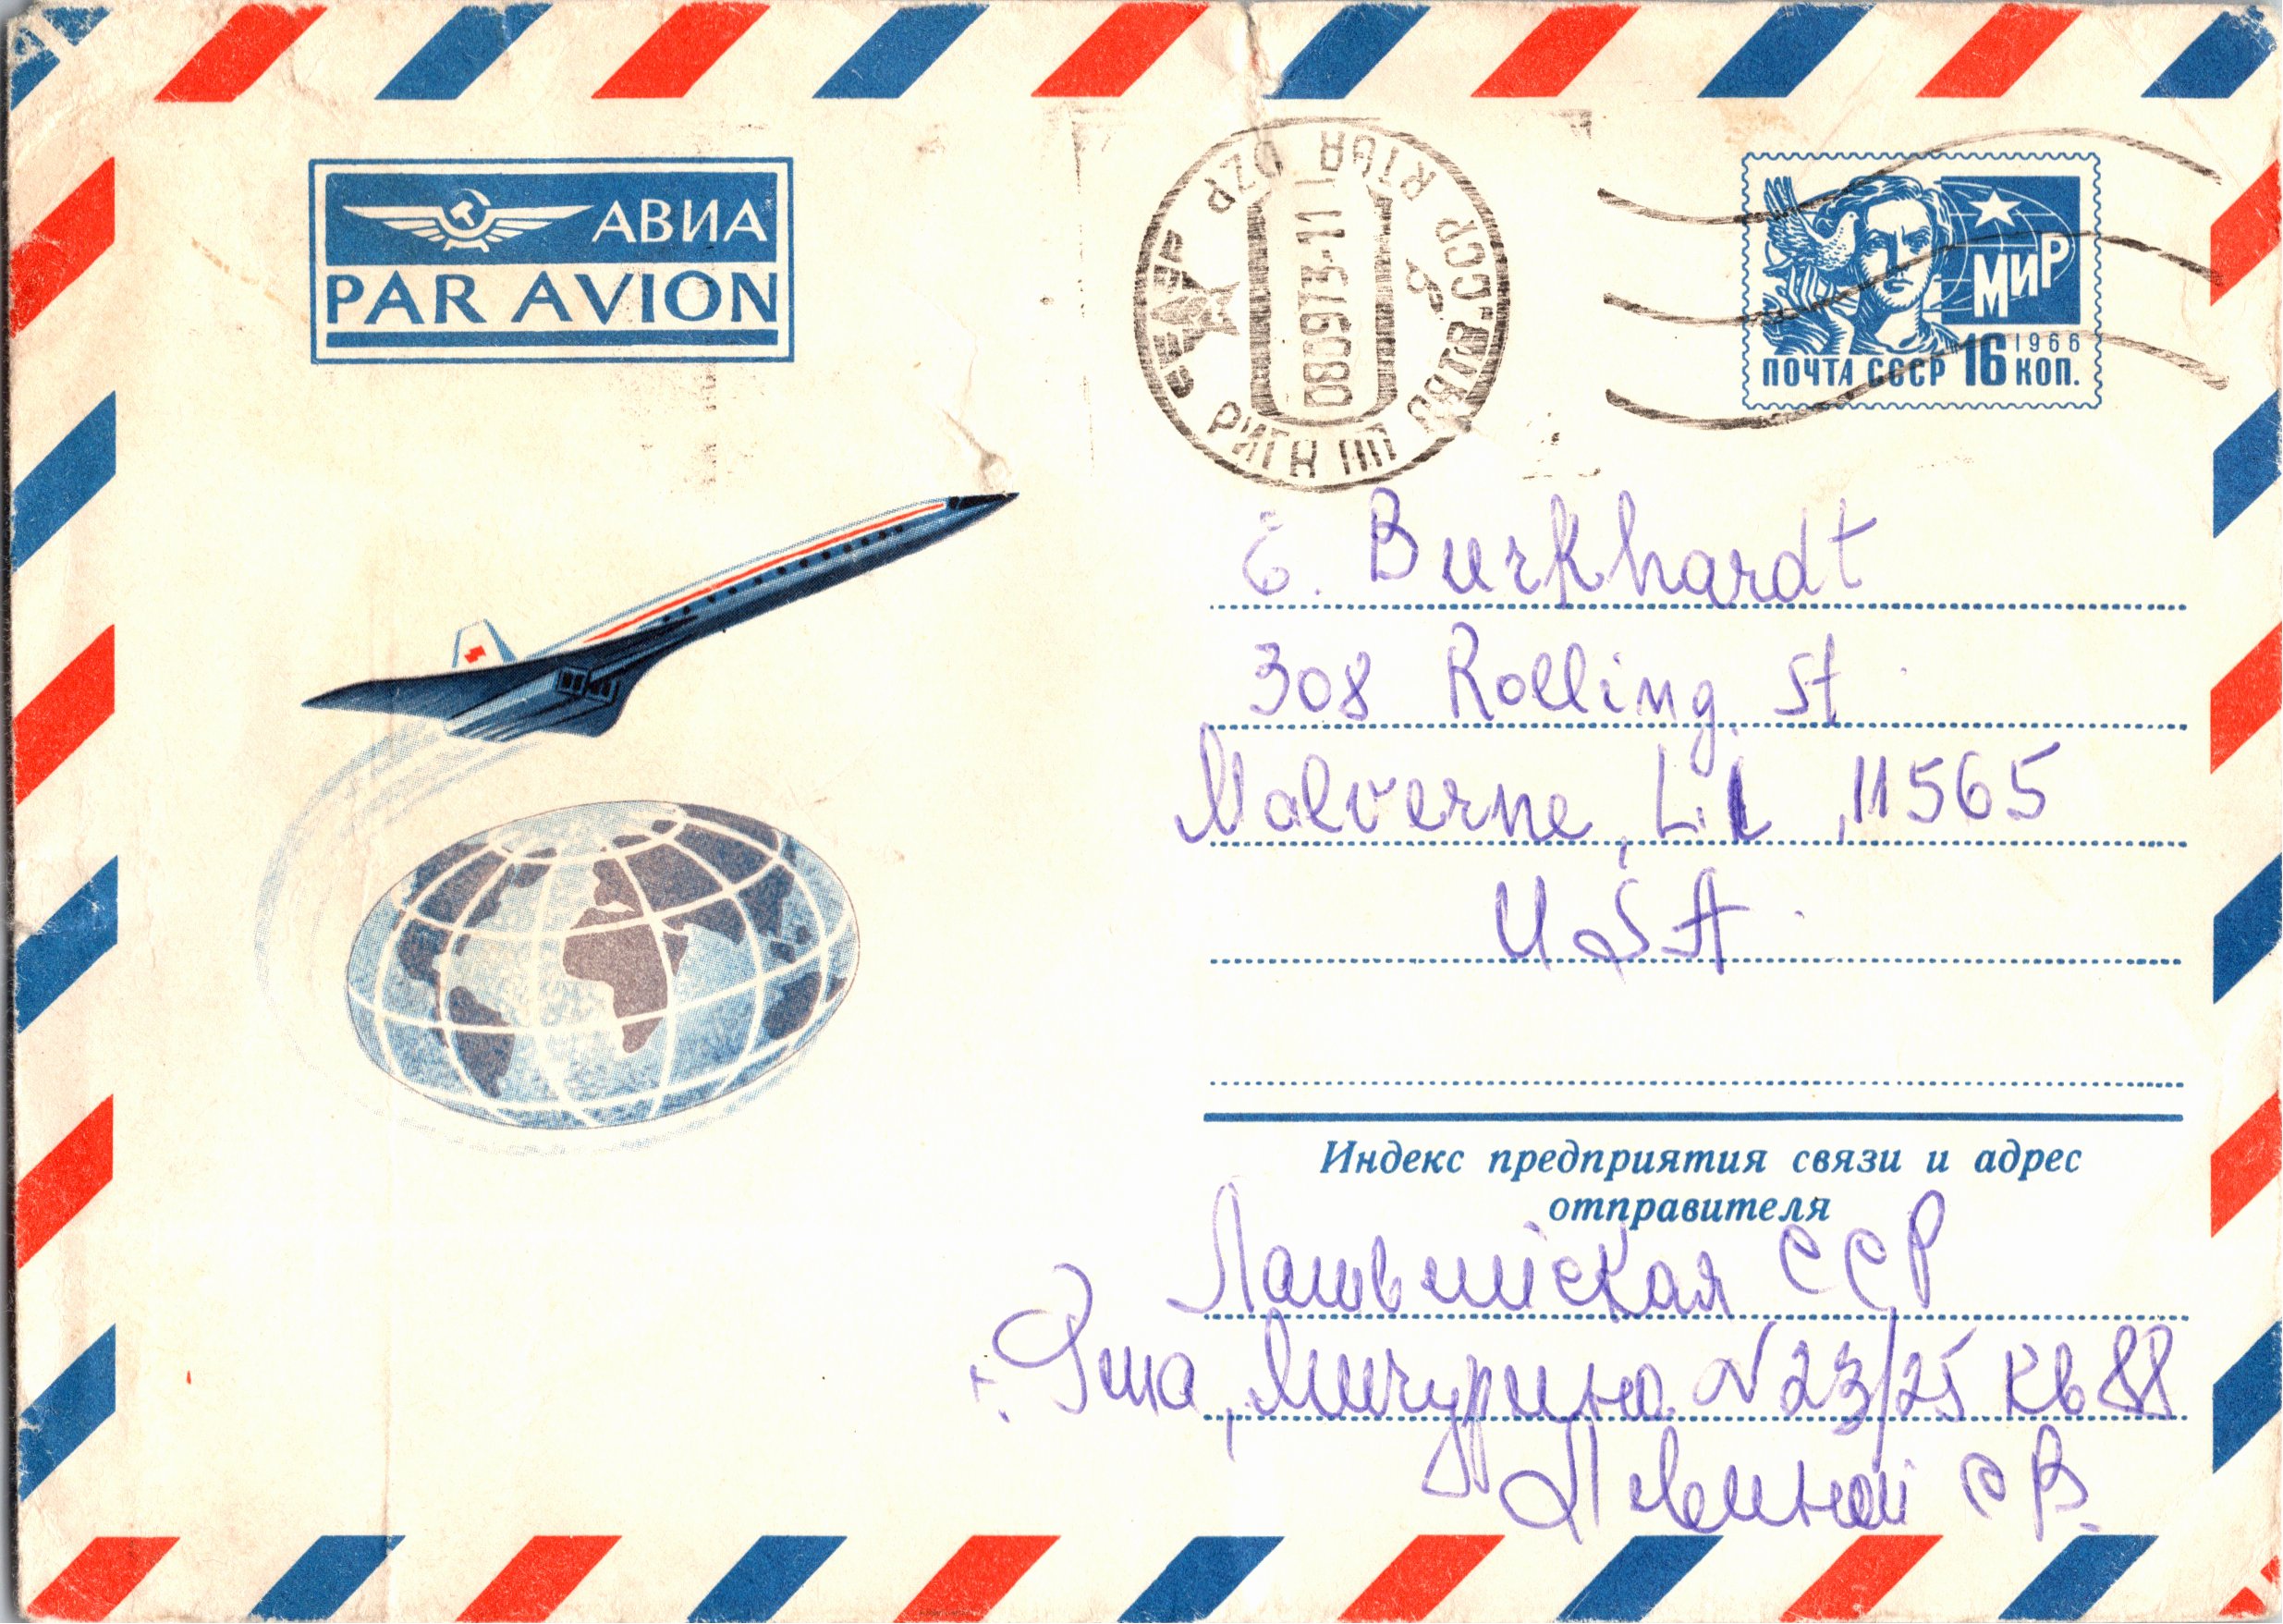 АВИА
PAR AVION
080973-11
МИР
1966
ПОЧТА СССР 16 КОП.
E. Burkhardt
308 Rolling St
Malverne, L.I., 11565
USA
Индекс предприятия связи и адрес
отправителя
Латвийская ССР
г. Рига, Мичурина N 23/25 кв 88
Левиной С В.